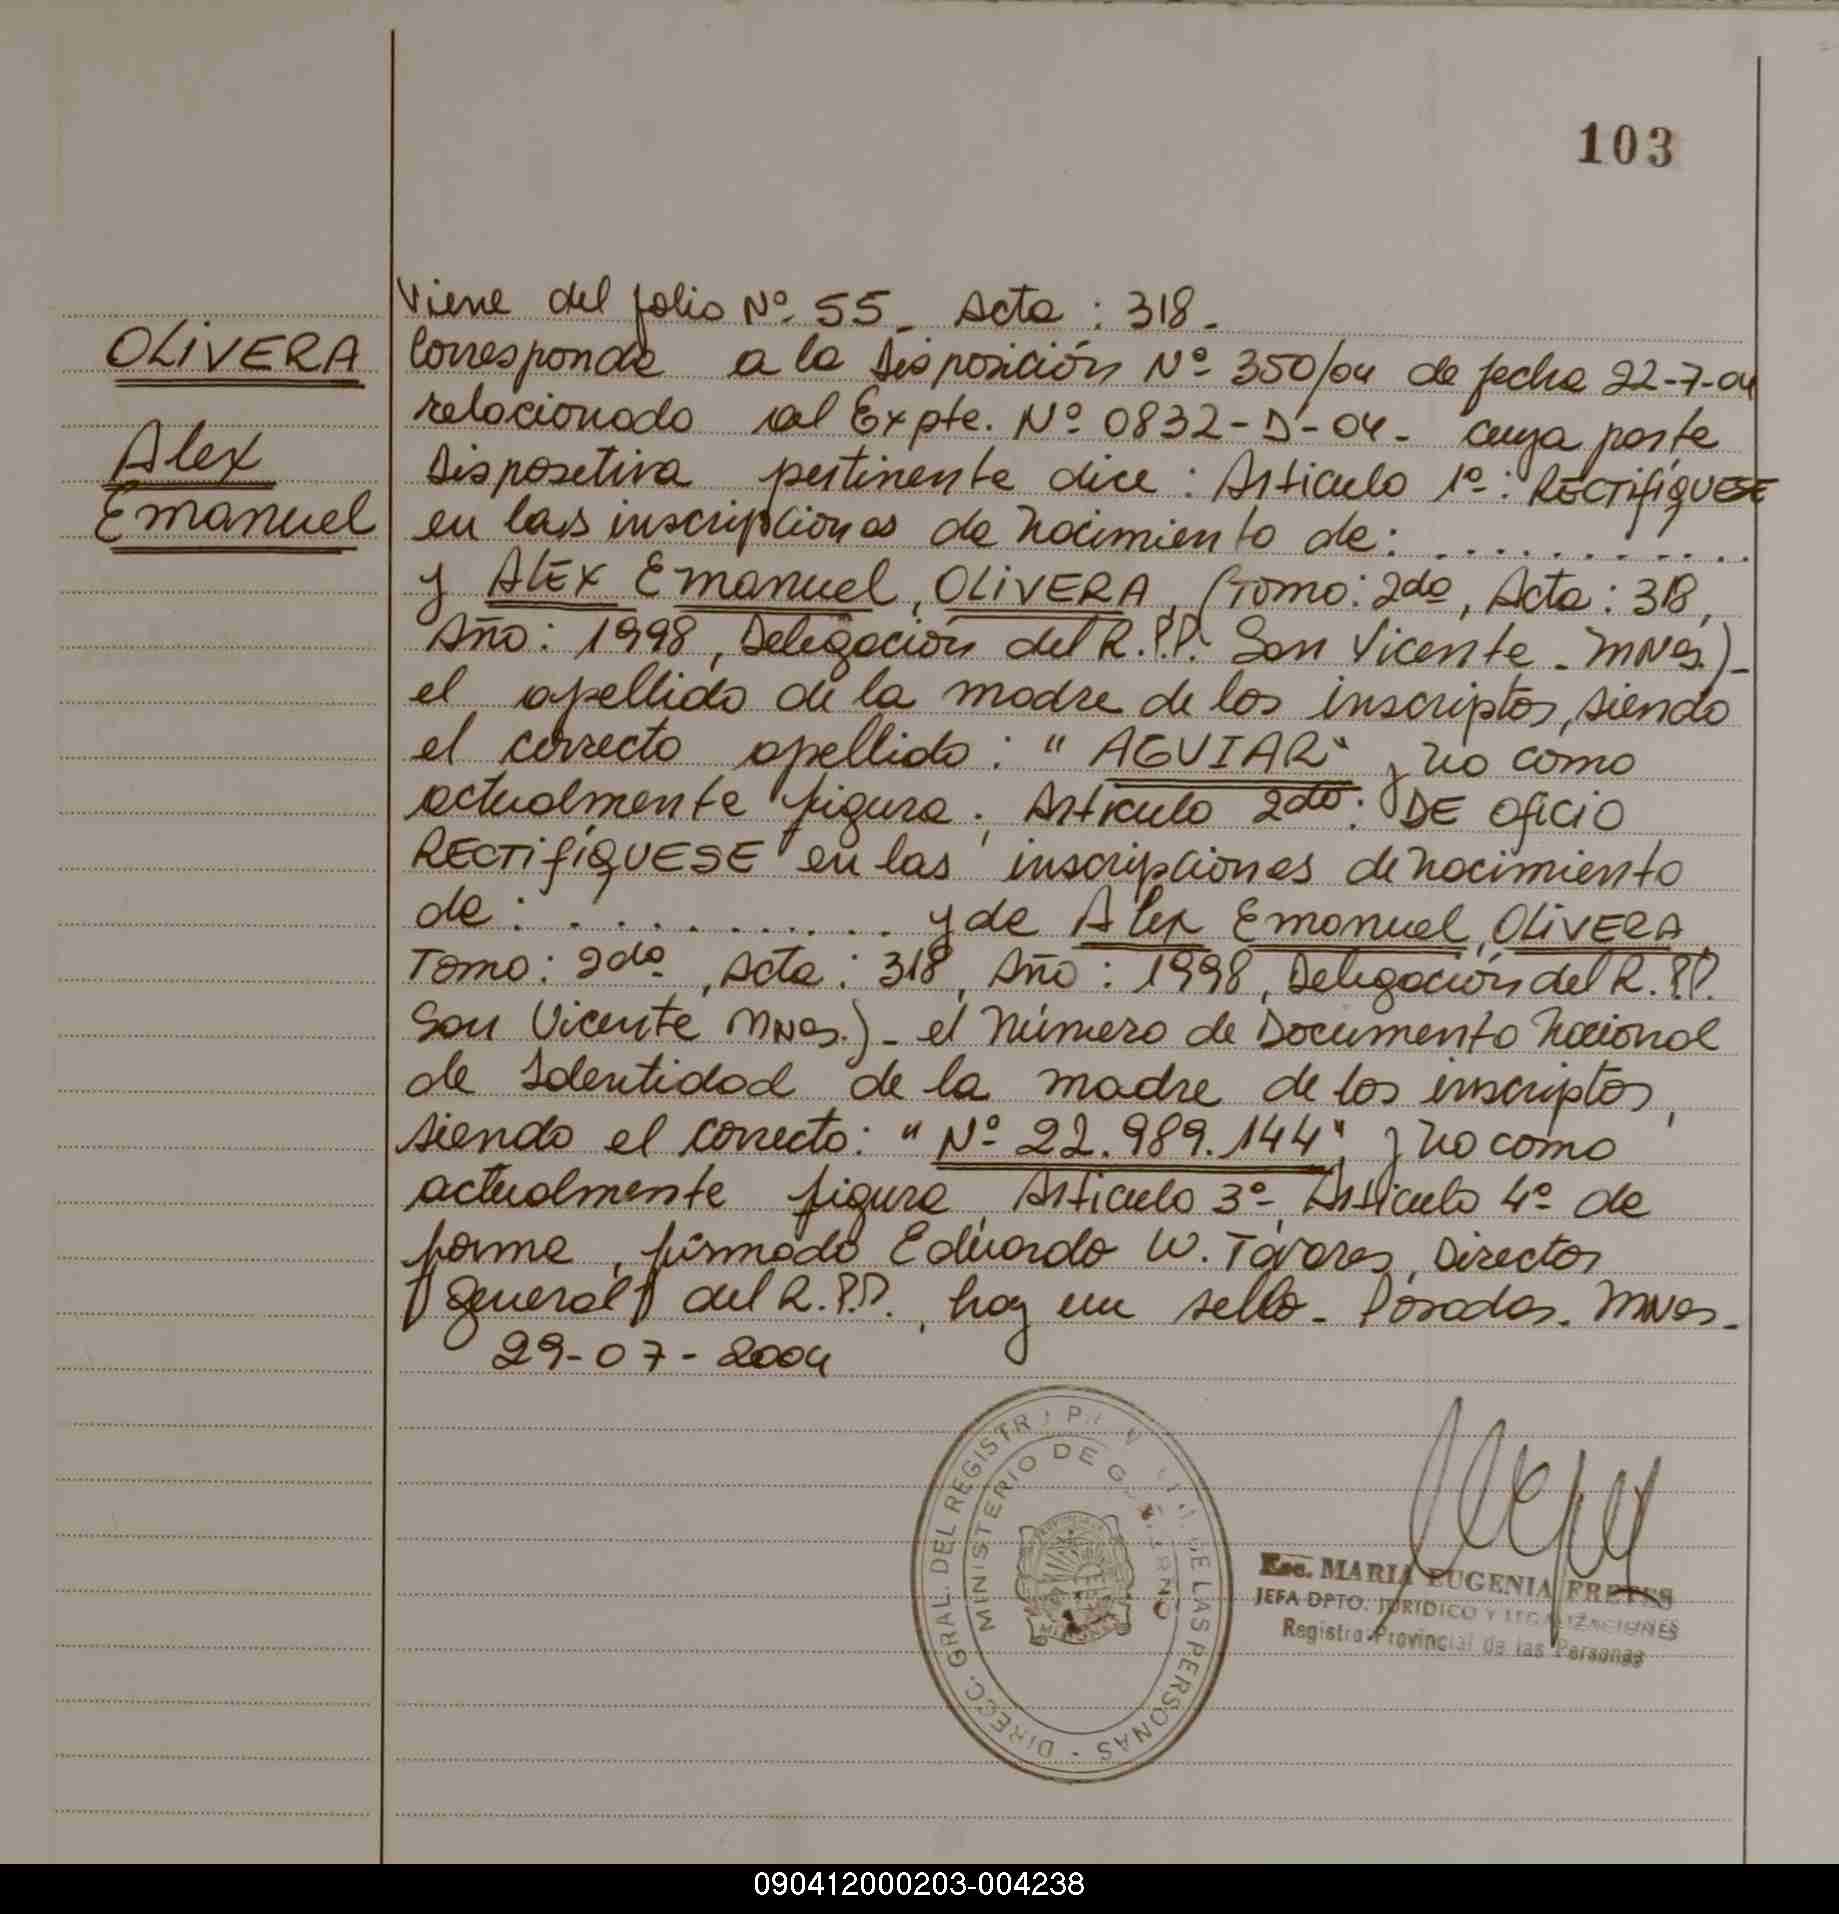 103
OLIVERA
Alex
Emanuel
Viene del folio Nº 55_ Acta : 318_
Corresponde a la Disposición Nº 350/04 de fecha 22-7-04
relacionado al Expte. Nº 0832-D-04- cuya parte
Dispositiva pertinente dice : Articulo 1º : RECTIFÍQUESE
en las inscripciones de nacimiento de: ............
y ALEX Emanuel, OLIVERA, (Tomo: 2do, Acta : 318,
Año : 1998, Delegación del R.P.P. San Vicente _ MNes.)_
el apellido de la madre de los inscriptos, siendo
el correcto apellido : "AGUIAR" y no como
actualmente figura ; Artículo 2do : DE Oficio
RECTIFÍQUESE en las inscripciones de nacimiento
de : ............ y de Alex Emanuel, OLIVERA
Tomo : 2do, Acta : 318, Año : 1998, Delegación del R.P.P.
San Vicente MNes.)_ el Número de Documento Nacional
de Identidad de la madre de los inscriptos,
siendo el correcto: "Nº 22.989.144" y no como
actualmente figura, Articulo 3º, Articulo 4º de
forma, firmado Eduardo W. Tavares, Director
General del R.P.P., hay un sello_ Posadas. MNes_
29-07-2004
DIRECC. GRAL. DEL REGISTRO DE LAS PERSONAS -
MINISTERIO DE GOBIERNO
Esc. MARIA EUGENIA FRETES
JEFA DPTO. JURIDICO Y LEGALIZACIONES
Registro Provincial de las Personas
090412000203-004238